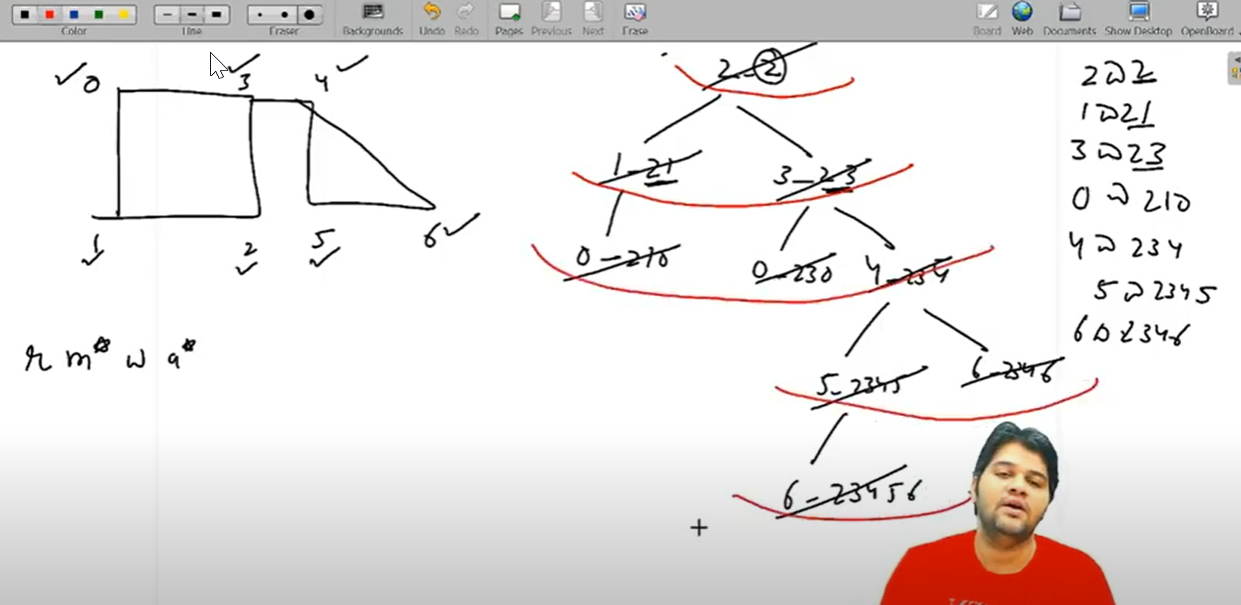 Color
Line
Eraser
Backgrounds
Undo
Redo
Pages
Previous
Next
Erase
Board
Web
Documents
Show Desktop
OpenBoard
0
3
4
1
2
5
6
r m* w a*
2 - 2
1 - 21
3 - 23
0 - 210
0 - 230
4 - 234
5 - 2345
6 - 2346
6 - 23456
2 2
1 21
3 23
0 210
4 234
5 2345
6 2346